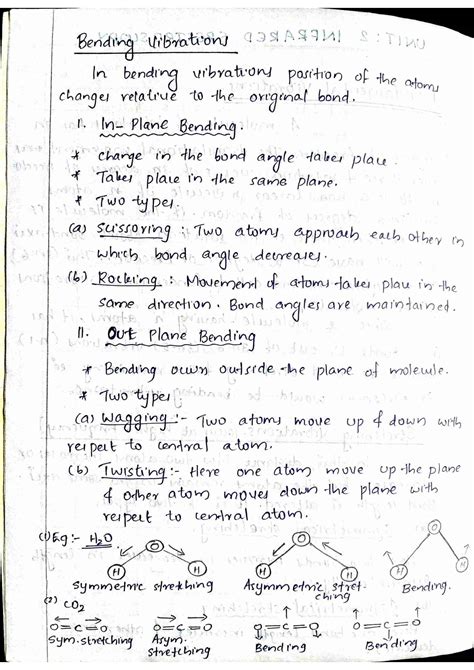 Bending Vibrations
In bending vibrations position of the atoms
changes relative to the original bond.
I. In-Plane Bending.
* change in the bond angle takes place.
* Takes place in the same plane.
* Two types.
(a) Scissoring :- Two atoms approach each other in
which bond angle decreases.
(b) Rocking : Movement of atoms takes place in the
same direction. Bond angles are maintained.
II. Out Plane Bending
* Bending occurs outside the plane of molecule.
* Two types :
(a) Wagging :- Two atoms move up & down with
respect to central atom.
(b) Twisting :- Here one atom move up the plane
& other atom moves down the plane with
respect to central atom.
(1) Eg :- H2O
O O O
H H H H H H
Symmetric stretching Asymmetric stret-
ching Bending.
(2) CO2
O=C=O O=C=O O=C=O O=C=O
Sym. stretching Asym.
stretching Bending Bending